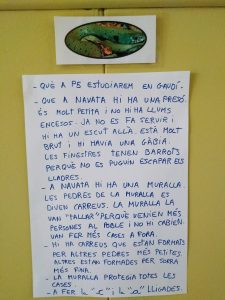 - QUÈ A P5 ESTUDIAREM EN GAUDÍ.
- QUE A NAVATA HI HA UNA PRESÓ.
ÉS MOLT PETITA I NO HI HA LLUMS
ENCESOS. JA NO ES FA SERVIR I
HI HA UN ESCUT ALLÀ. ESTÀ MOLT
BRUT I HI HAVIA UNA GÀBIA.
LES FINESTRES TENEN BARROTS
PERQUÈ NO ES PUGUIN ESCAPAR ELS
LLADRES.
- A NAVATA HI HA UNA MURALLA.
LES PEDRES DE LA MURALLA ES
DIUEN CARREUS. LA MURALLA LA
VAN "TALLAR" PERQUÈ VENIEN MÉS
PERSONES AL POBLE I NO HI CABIEN.
VAN FER MÉS CASES A FORA.
- HI HA CARREUS QUE ESTAN FORMATS
PER ALTRES PEDRES MÉS PETITES,
ALTRES ESTAN FORMADES PER SORRA
MÉS FINA.
- LA MURALLA PROTEGIA TOTES LES
CASES.
- A FER LA "e" I LA "a" LLIGADES.